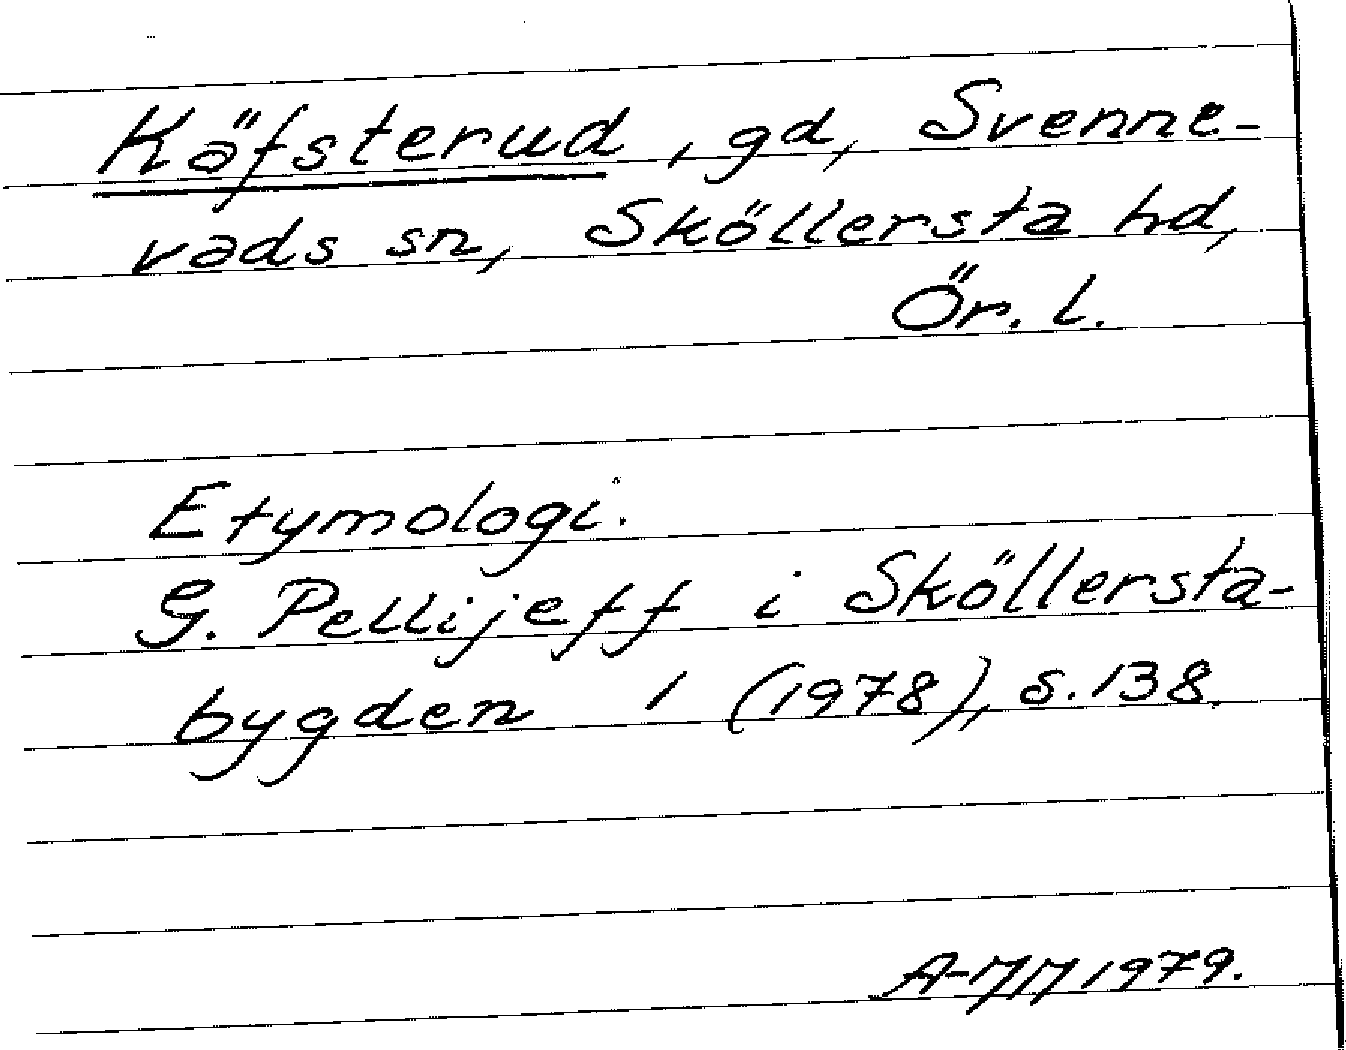 Käfsterud, gd, Svenne-
vads sn, Sköllersta hd,
Ör. l.
Etymologi.
G. Pellijeff i Sköllersta-
bygden 1 (1978), s. 138.
A-MM 1979.